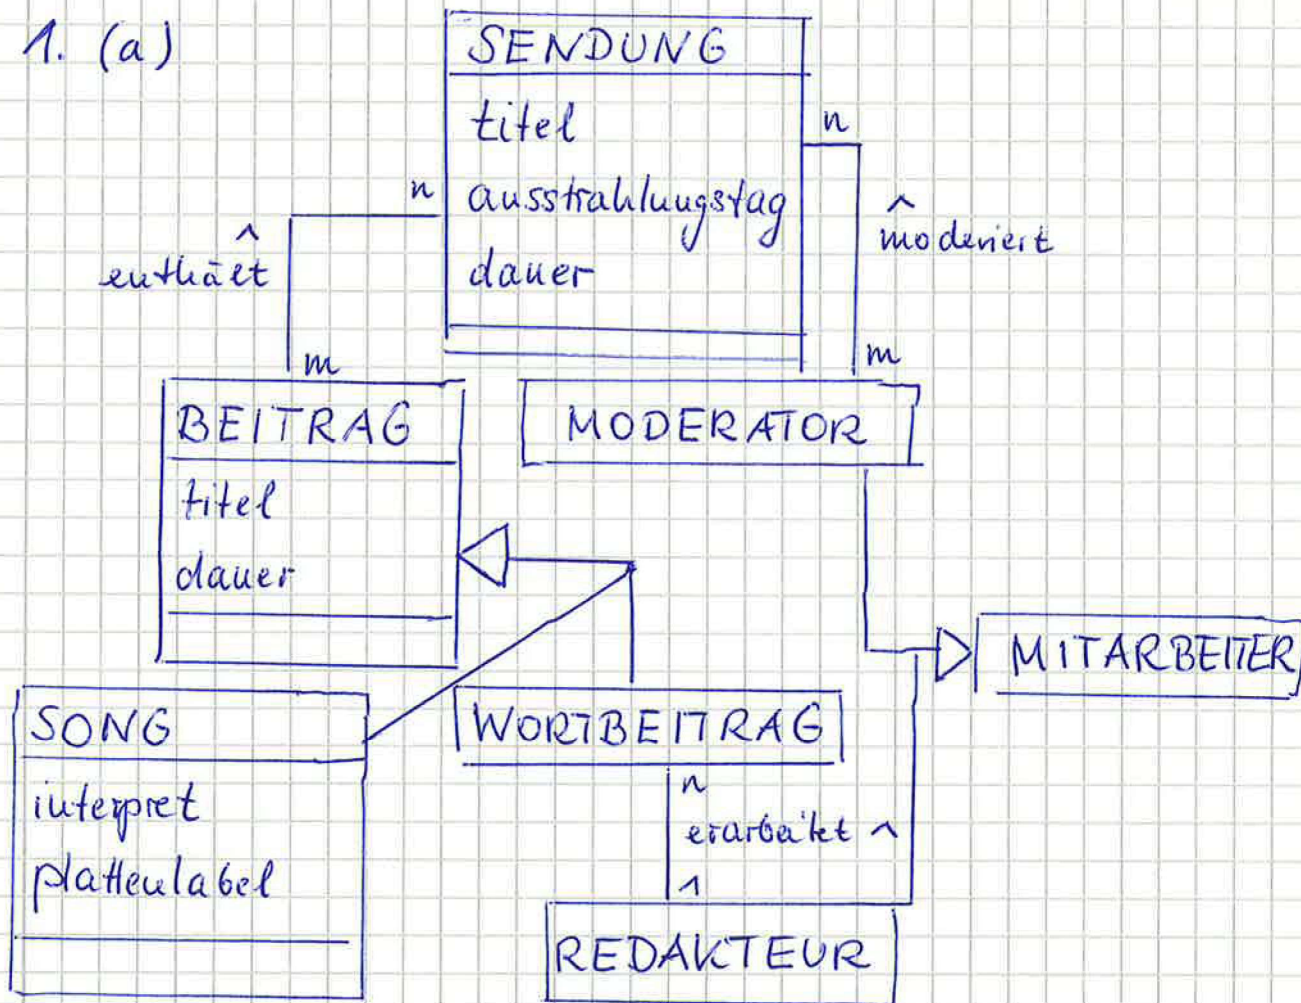 1. (a)
SENDUNG
titel
ausstrahlungstag
dauer
n
enthält ^
m
n
^ moderiert
m
BEITRAG
titel
dauer
MODERATOR
MITARBEITER
SONG
interpret
plattenlabel
WORTBEITRAG
n
erarbeitet ^
1
REDAKTEUR